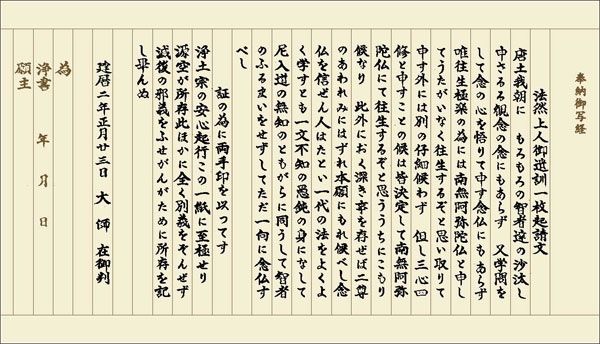 奉納御写経
法然上人御遺訓一枚起請文
唐土我朝に　もろもろの智者達の沙汰し
申さるる観念の念にもあらず　又学問を
して念の心を悟りて申す念仏にもあらず
唯往生極楽の為には南無阿弥陀仏と申し
てうたがいなく往生するぞと思い取りて
申す外には別の仔細候わず　但し三心四
修と申すことの候は皆決定して南無阿弥
陀仏にて往生するぞと思ううちにこもり
候なり　此外におく深き事を存ぜば二尊
のあわれみにはずれ本願にもれ候べし念
仏を信ぜん人はたとい一代の法をよくよ
く学すとも一文不知の愚鈍の身になして
尼入道の無知のともがらに同うして智者
のふるまいをせずしてただ一向に念仏す
べし
証の為に両手印を以ってす
浄土宗の安心起行この一紙に至極せり
源空が所存此ほかに全く別義をぞんぜず
滅後の邪義をふせがんがために所存を記
し畢んぬ
建暦二年正月廿三日　大師　在御判
為
浄書　年　月　日
願主